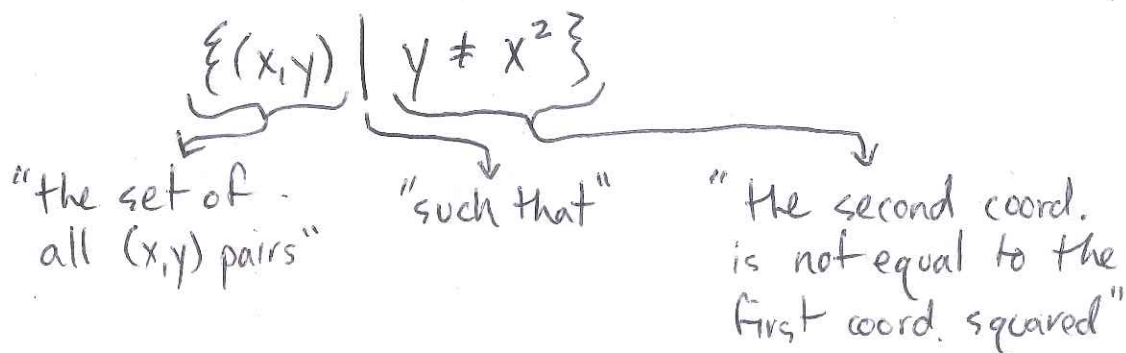 {(x,y) | y ≠ x²}
"the set of
all (x,y) pairs"
"such that"
"the second coord.
is not equal to the
first coord. squared"